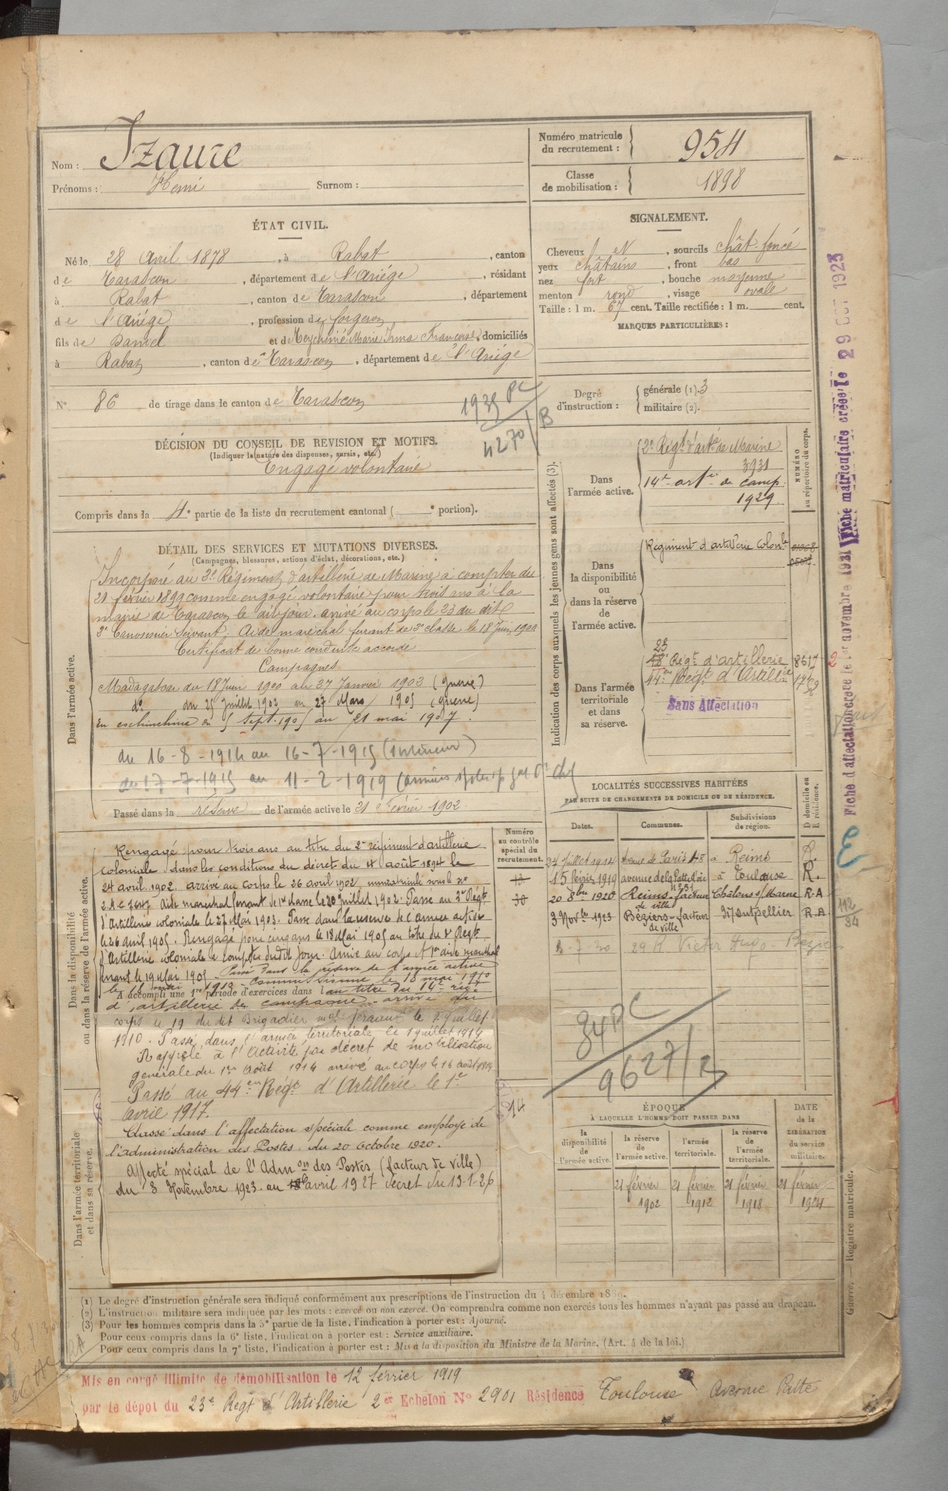 Nom : Izaure
Prénoms : Henri Surnom :
Numéro matricule du recrutement : 954
Classe de mobilisation : 1898
ÉTAT CIVIL.
Né le 28 avril 1878, à Rabat, canton
de Tarascon, département de l'Ariége, résidant
à Rabat, canton de Tarascon, département
de l'Ariége, profession de forgeron
fils de et de Marie Irma Françoise, domiciliés
à Rabat, canton de Tarascon, département de l'Ariége
N° 86 de tirage dans le canton de Tarascon
1939 PC
4270 / B
SIGNALEMENT.
Cheveux et N, sourcils chât. foncé
yeux châtains, front bas
nez fort, bouche moyenne
menton rond, visage ovale
Taille : 1 m. 67 cent. Taille rectifiée : 1 m. cent.
MARQUES PARTICULIÈRES :
Degré d'instruction : générale (1). 3
militaire (2).
DÉCISION DU CONSEIL DE REVISION ET MOTIFS.
(Indiquer la nature des dispenses, sursis, etc.)
Engagé volontaire
Compris dans la 4e partie de la liste du recrutement cantonal ( e portion).
DÉTAIL DES SERVICES ET MUTATIONS DIVERSES.
(Campagnes, blessures, actions d'éclat, décorations, etc.)
Dans l'armée active.
Incorporé au 2e Régiment d'artillerie de Marine à compter du
21 février 1899 comme engagé volontaire pour trois ans à la
mairie de Tarascon le dit jour. arrivé au corps le 23 du dit
2e Canonnier Servant. Aide maréchal ferrant de 2e classe le 18 Juin 1900
Certificat de bonne conduite accordé
Campagnes
Madagascar du 18 Juin 1900 au 27 Janvier 1902 (guerre)
do du 25 Juillet 1902 au 27 Mars 1905 (guerre)
En cochinchine du 5 Sept. 1905 au 21 mai 1907.
du 16-8-1914 au 16-7-1915 (intérieur)
du 17-7-1915 au 11-2-1919 (armées
Passé dans la réserve de l'armée active le 21 Février 1902
Dans la disponibilité ou dans la réserve de l'armée active.
Rengagé pour trois ans au titre du 2e régiment d'artillerie
coloniale dans les conditions du décret du 4 août 1894 le
24 avril 1902. arrivé au corps le 26 avril 1902, immatriculé sous le no
Aide maréchal ferrant de 1re classe le 20 Juillet 1902. Passé au Régt
d'Artillerie coloniale le 27 Mai 1903. Passé dans la réserve de l'armée active
le 26 avril 1905. Rengagé pour cinq ans le 18 Mai 1905 au titre du Régt
d'Artillerie coloniale à compter dudit jour. Arrivé au corps et 1er aide maréchal
ferrant le 19 Mai 1905. Passé dans la réserve de l'armée active
A accompli une 1re période d'exercices dans l au titre du 14e régt
d'artillerie de campagne, arrivé au
corps le 19 du dit Brigadier mal ferrant le 7 juillet
1910. Passé dans l'armée territoriale le 1 juillet 1914
Rappelé à l'activité par décret de mobilisation
générale du 1er Août 1914 arrivé au corps le 16 août 1914
Passé au 44eme Régt d'Artillerie le 1er
avril 1917.
Classé dans l'affectation spéciale comme employé de
l'administration des Postes, du 20 octobre 1920.
Affecté spécial de l'Admon des Postes (facteur de ville)
du 3 Novembre 1923 au avril 1927 décret du 13-1-26
Dans l'armée territoriale et dans sa réserve.
Numéro au contrôle spécial du recrutement.
14
Indication des corps auxquels les jeunes gens sont affectés (3).
NUMÉRO au répertoire du corps.
Dans l'armée active.
2e Régt d'artie de Marine
3931
14e artie de camp.
1929
Dans la disponibilité ou dans la réserve de l'armée active.
Régiment d'artillerie colonle
Dans l'armée territoriale et dans sa réserve.
23
18e Régt d'artillerie 8617
44e Régt d'Artillie
Sans Affectation
LOCALITÉS SUCCESSIVES HABITÉES
PAR SUITE DE CHANGEMENTS DE DOMICILE OU DE RÉSIDENCE.
Dates. Communes. Subdivisions de région. D domicile ou R résidence.
Juillet 1914 Avenue de Paris 48 à Reims R.
15 février 1919 avenue de la Patte d'oie à Toulouse R.
20 8bre 1920 Reims facteur de ville Châlons s/ Marne R.A
3 Novbre 1923 Béziers facteur de ville Montpellier R.A
29 R Victor Hugo Béziers
34 PC
9627/B
ÉPOQUE
À LAQUELLE L'HOMME DOIT PASSER DANS
DATE de la LIBÉRATION du service militaire.
la disponibilité de l'armée active. la réserve de l'armée active. l'armée territoriale. la réserve de l'armée territoriale.
21 février 1902 21 février 1912 21 février 1918 21 février 1924
(1) Le degré d'instruction générale sera indiqué conformément aux prescriptions de l'instruction du 4 décembre 18
(2) L'instruction militaire sera indiquée par les mots : exercé ou non exercé. On comprendra comme non exercés tous les hommes n'ayant pas passé au drapeau.
(3) Pour les hommes compris dans la 5e partie de la liste, l'indication à porter est : Ajourné.
Pour ceux compris dans la 6e liste, l'indication à porter est : Service auxiliaire.
Pour ceux compris dans la 7e liste, l'indication à porter est : Mis à la disposition du Ministre de la Marine. (Art. 4 de la loi.)
Mis en congé illimité de démobilisation le 12 février 1919
par le dépot du 23e Régt d'Artillerie 2e Echelon N° 2901 Résidence Toulouse Avenue Patte
Fiche d'affectation créée le 1er novembre 1931
Fiche matriculaire créée le 29 OCT 1923
Guerre. Registre matricule.